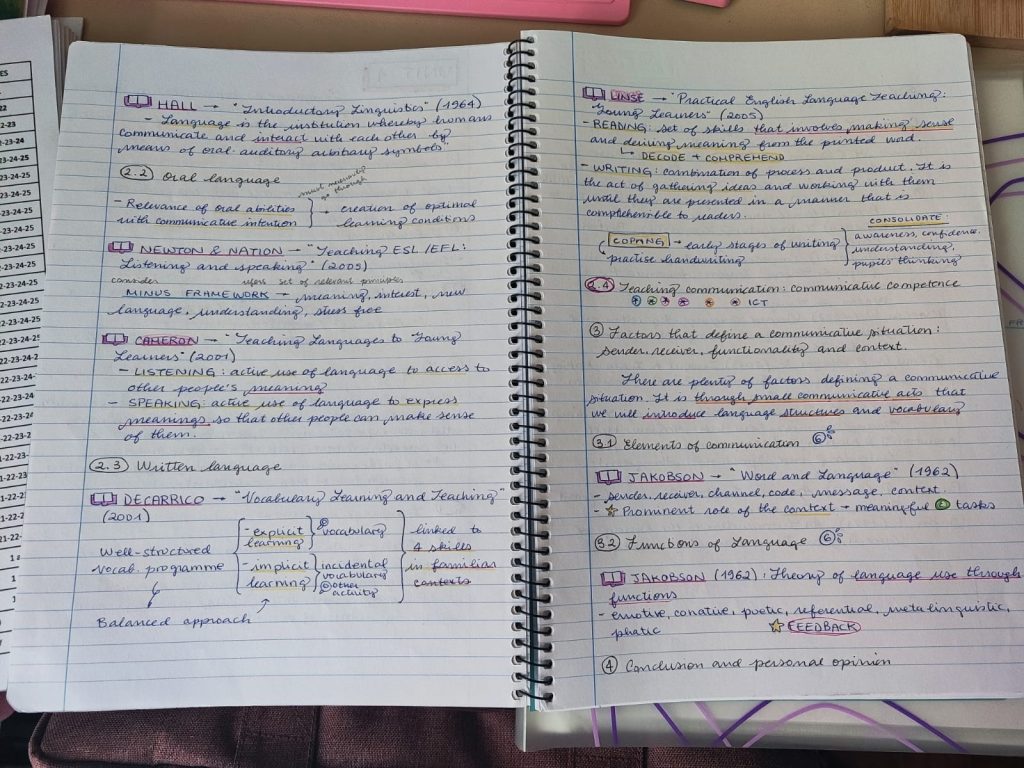 ES
22
2-23
23-24
23-24-25
23-24-25
-23-24-25
-23-24-25
-23-24-25
2-23-24-25
2-23-24-25
2-23-24-25
HALL → "Introductory Linguistics" (1964)
- Language is the institution whereby humans
communicate and interact with each other by
means of oral-auditory arbitrary symbols"
2.2 Oral language
must necessarily
go through
- Relevance of oral abilities → creation of optimal
with communicative intention learning conditions
NEWTON & NATION → "Teaching ESL/EFL:
Listening and speaking" (2005)
consider refers set of relevant principles
MINUS FRAMEWORK → meaning, interest, new
language, understanding, stress free
CAMERON → "Teaching Languages to Young
Learners" (2001)
- LISTENING: active use of language to access to
other people's meaning
- SPEAKING: active use of language to express
meanings, so that other people can make sense
of them.
2.3 Written language
DECARRICO → "Vocabulary Learning and Teaching"
(2001)
Well-structured
Vocab. programme
Balanced approach
- explicit
learning
- implicit
learning
vocabulary
incidental
vocabulary
other
activity
linked to
4 skills
in familiar
contexts
LINSE → "Practical English Language Teaching:
Young Learners" (2005)
- READING: set of skills that involves making sense
and deriving meaning from the printed word.
↳ DECODE + COMPREHEND
- WRITING: combination of process and product. It is
the act of gathering ideas and working with them
until they are presented in a manner that is
comprehensible to readers.
COPYING → early stages of writing
practise handwriting
CONSOLIDATE:
awareness, confidence,
understanding,
pupils thinking
2.4 Teaching communication: communicative competence
ICT
3 Factors that define a communicative situation:
sender, receiver, functionality and context.
There are plenty of factors defining a communicative
situation. It is through small communicative acts that
we will introduce language structures and vocabulary
3.1 Elements of communication 6
JAKOBSON → "Word and Language" (1962)
- sender, receiver, channel, code, message, context
- Prominent role of the context → meaningful C tasks
3.2 Functions of Language 6
JAKOBSON (1962): Theory of language use through
functions
- emotive, conative, poetic, referential, metalinguistic,
phatic FEEDBACK
4 Conclusion and personal opinion